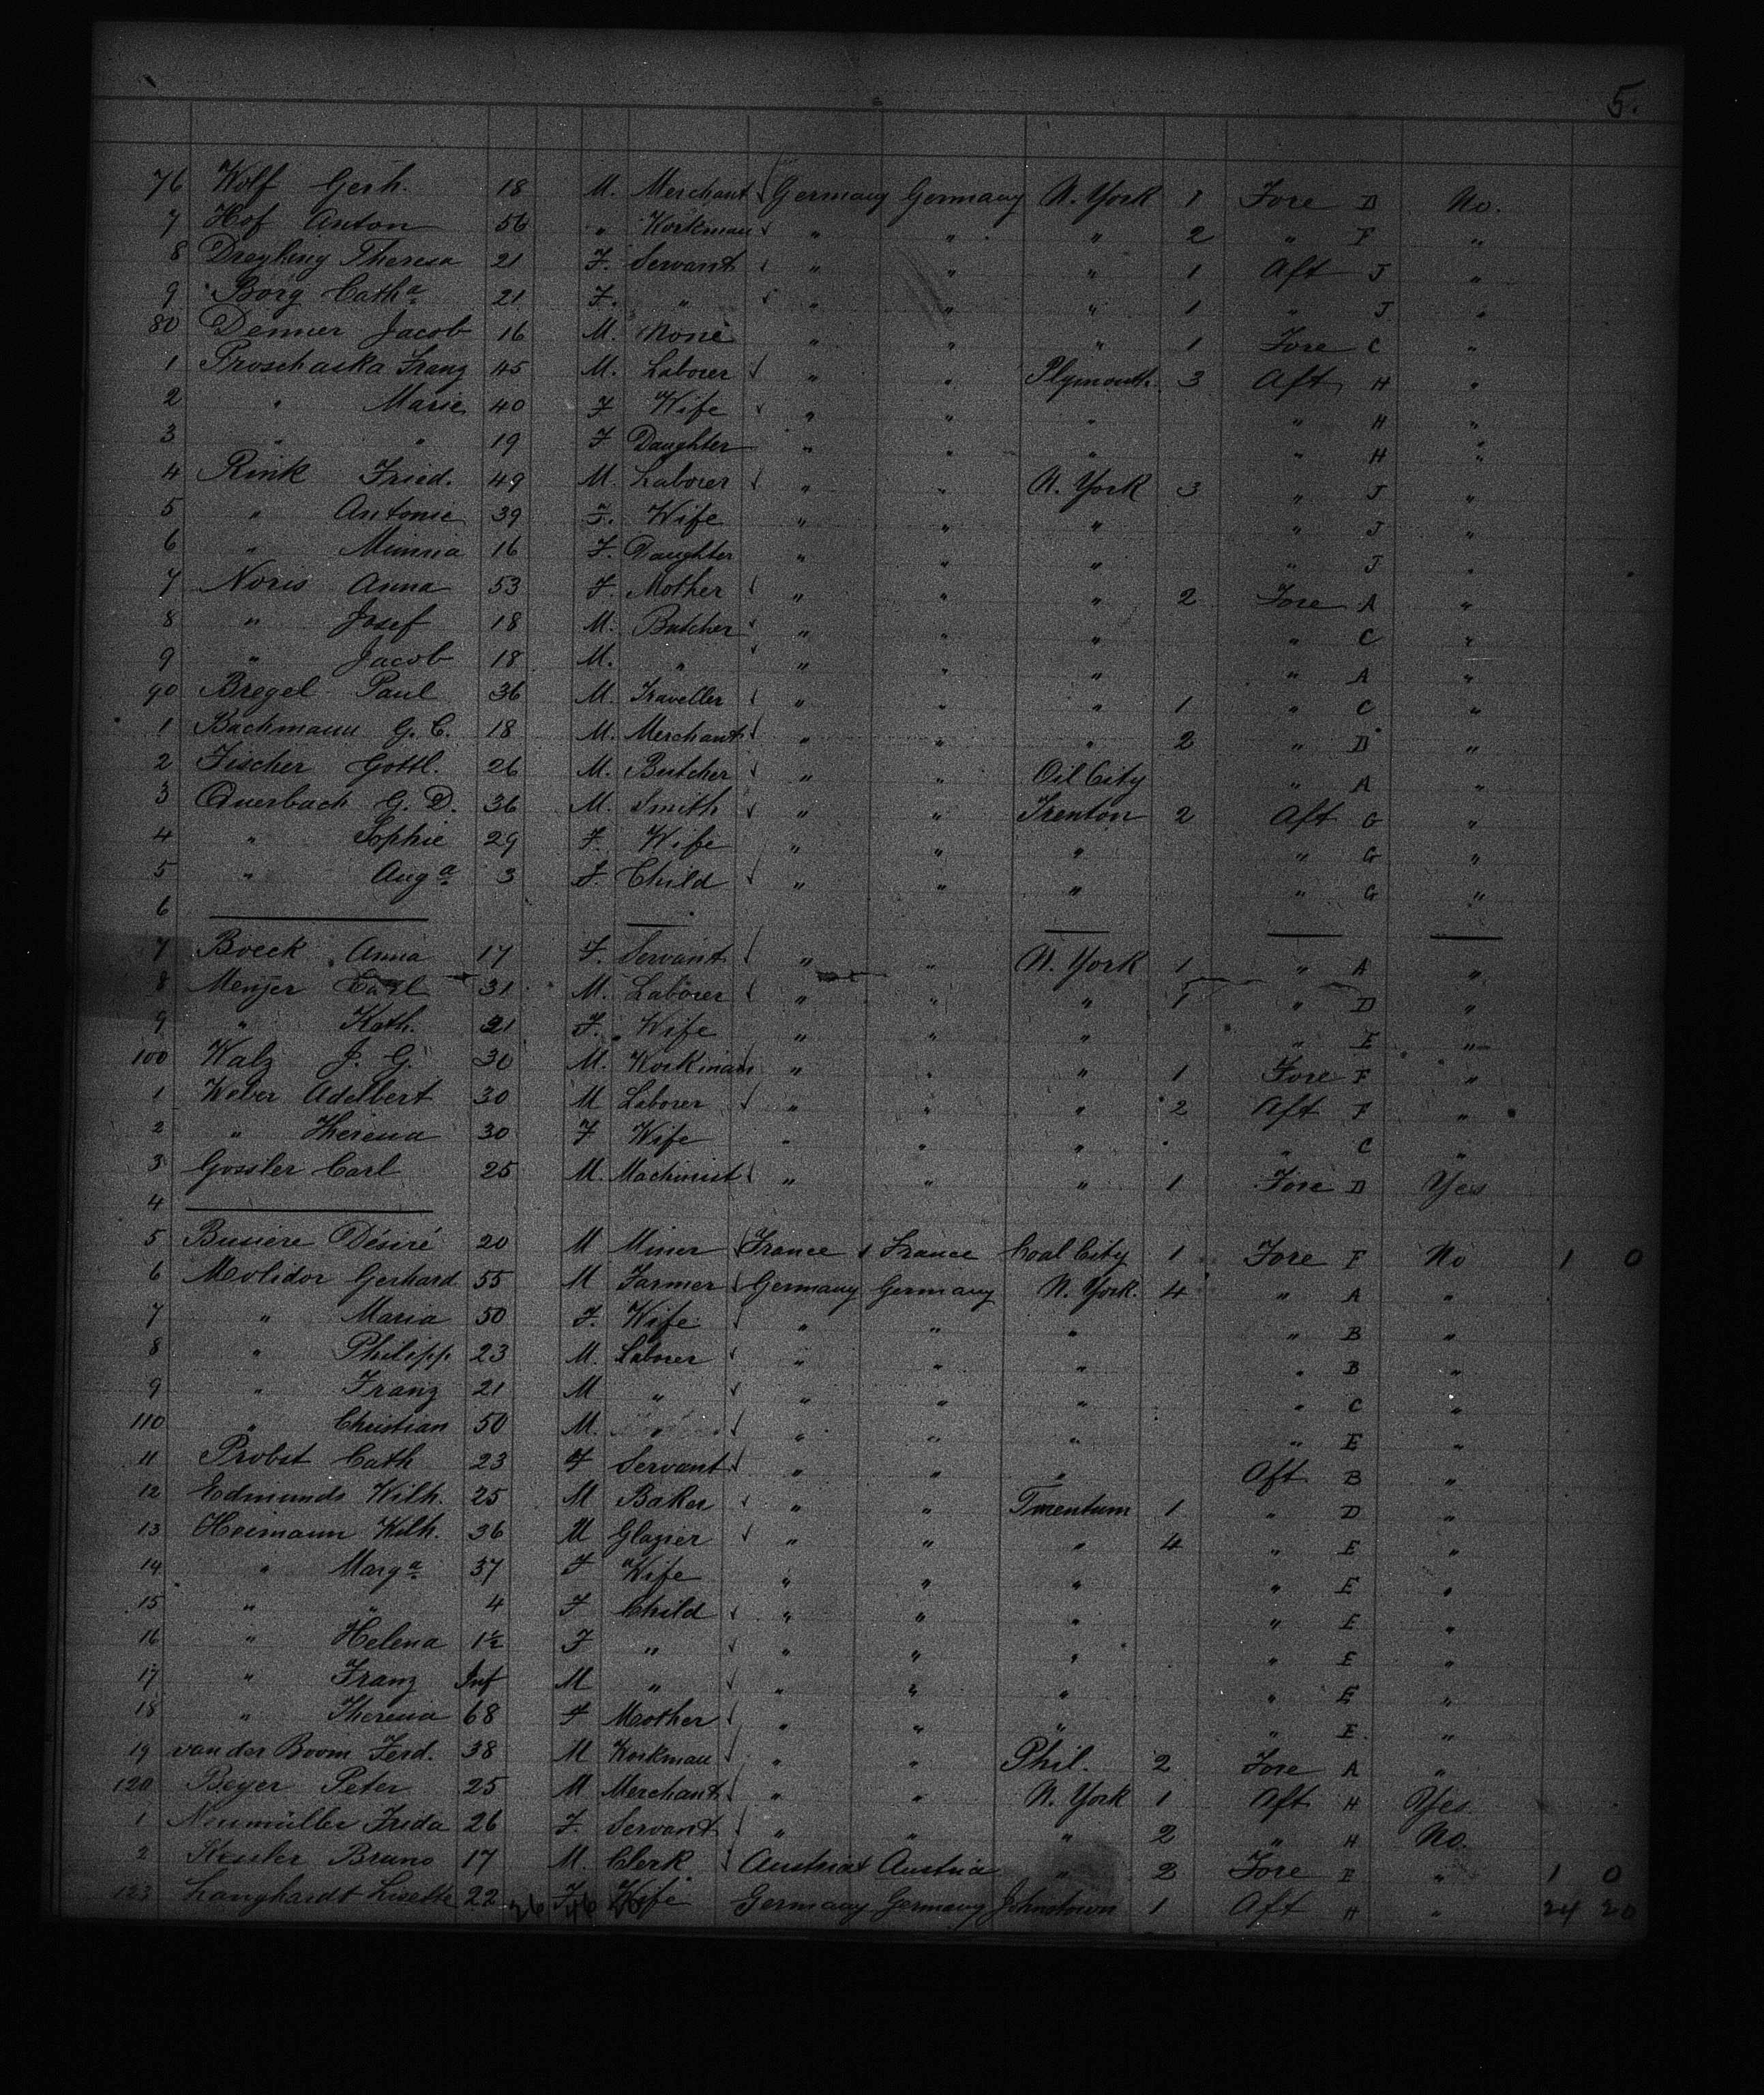 5.
76 Wolf Gerh. 18 M. Merchant Germany Germany N. York 1 Fore D No.
7 Hof Anton 56 " Workman " " " 2 " F "
8 Dreyling Theresa 21 F. Servant " " " 1 Aft J "
9 Borg Cath.a 21 F. " " " " 1 " J "
80 Demier Jacob 16 M. None " " " 1 Fore C "
1 Proschaska Franz 45 M. Laborer " " Plymouth 3 Aft H "
2 " Marie 40 F Wife " " " " H "
3 " " 19 F Daughter " " " " H "
4 Rink Fried. 49 M. Laborer " " N. York 3 " J "
5 " Antonie 39 F. Wife " " " " J "
6 " Minna 16 F. Daughter " " " " J "
7 Noris Anna 53 F. Mother " " " 2 Fore A "
8 " Josef 18 M. Butcher " " " " C "
9 " Jacob 18 M. " " " " " A "
90 Bregel Paul 36 M. Traveller " " " 1 " C "
1 Bachmann G. C. 18 M. Merchant " " " 2 " D "
2 Fischer Gottl. 26 M. Butcher " " Oil City " A "
3 Auerbach G. D. 36 M. Smith " " Trenton 2 Aft G "
4 " Sophie 29 F. Wife " " " " G "
5 " Aug.a 3 F. Child " " " " G "
6
7 Boeck Anna 17 F. Servant " " N. York 1 " A "
8 Menjer Carl 31 M. Laborer " " " 1 " D "
9 " Kath. 21 F. Wife " " " " E "
100 Walz J. G. 30 M. Workman " " " 1 Fore F "
1 Weber Adelbert 30 M Laborer " " " 2 Aft F "
2 " Theresa 30 F Wife " " " " C "
3 Gossler Carl 25 M. Machinist " " " 1 Fore D Yes
4
5 Busiere Désiré 20 M Miner France France Coal City 1 Fore F No 1 0
6 Molidor Gerhard 55 M Farmer Germany Germany N. York. 4 " A "
7 " Maria 50 F. Wife " " " " B "
8 " Philipp 23 M. Laborer " " " " B "
9 " Franz 21 M " " " " " C "
110 " Christian 50 M. " " " " " E "
11 Probst Cath 23 F Servant " " " Aft B "
12 Edmunds Wilh. 25 M Baker " " Tarentum 1 " D "
13 Heimann Wilh. 36 M Glazier " " " 4 " E "
14 " Marg.a 37 F Wife " " " " E "
15 " " 4 F Child " " " " E "
16 " Helena 1½ F " " " " " E "
17 " Franz Inf M " " " " " E "
18 " Theresa 68 F Mother " " " " E. "
19 van der Boom Ferd. 38 M Workman " " Phil. 2 Fore A "
120 Beyer Peter 25 M Merchant " " N. York 1 Aft H Yes
1 Neumüller Frida 26 F. Servant " " " 2 " H No.
2 Bruno 17 M. Clerk Austria Austria " 2 Fore E " 1 0
123 Langhardt Lisette 22 F. Wife Germany Germany Johnstown 1 Aft H " 24 20